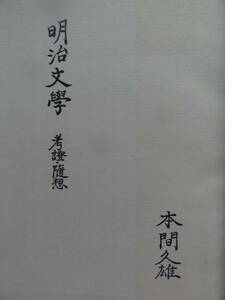 明治文學
考證・隨想
本間久雄